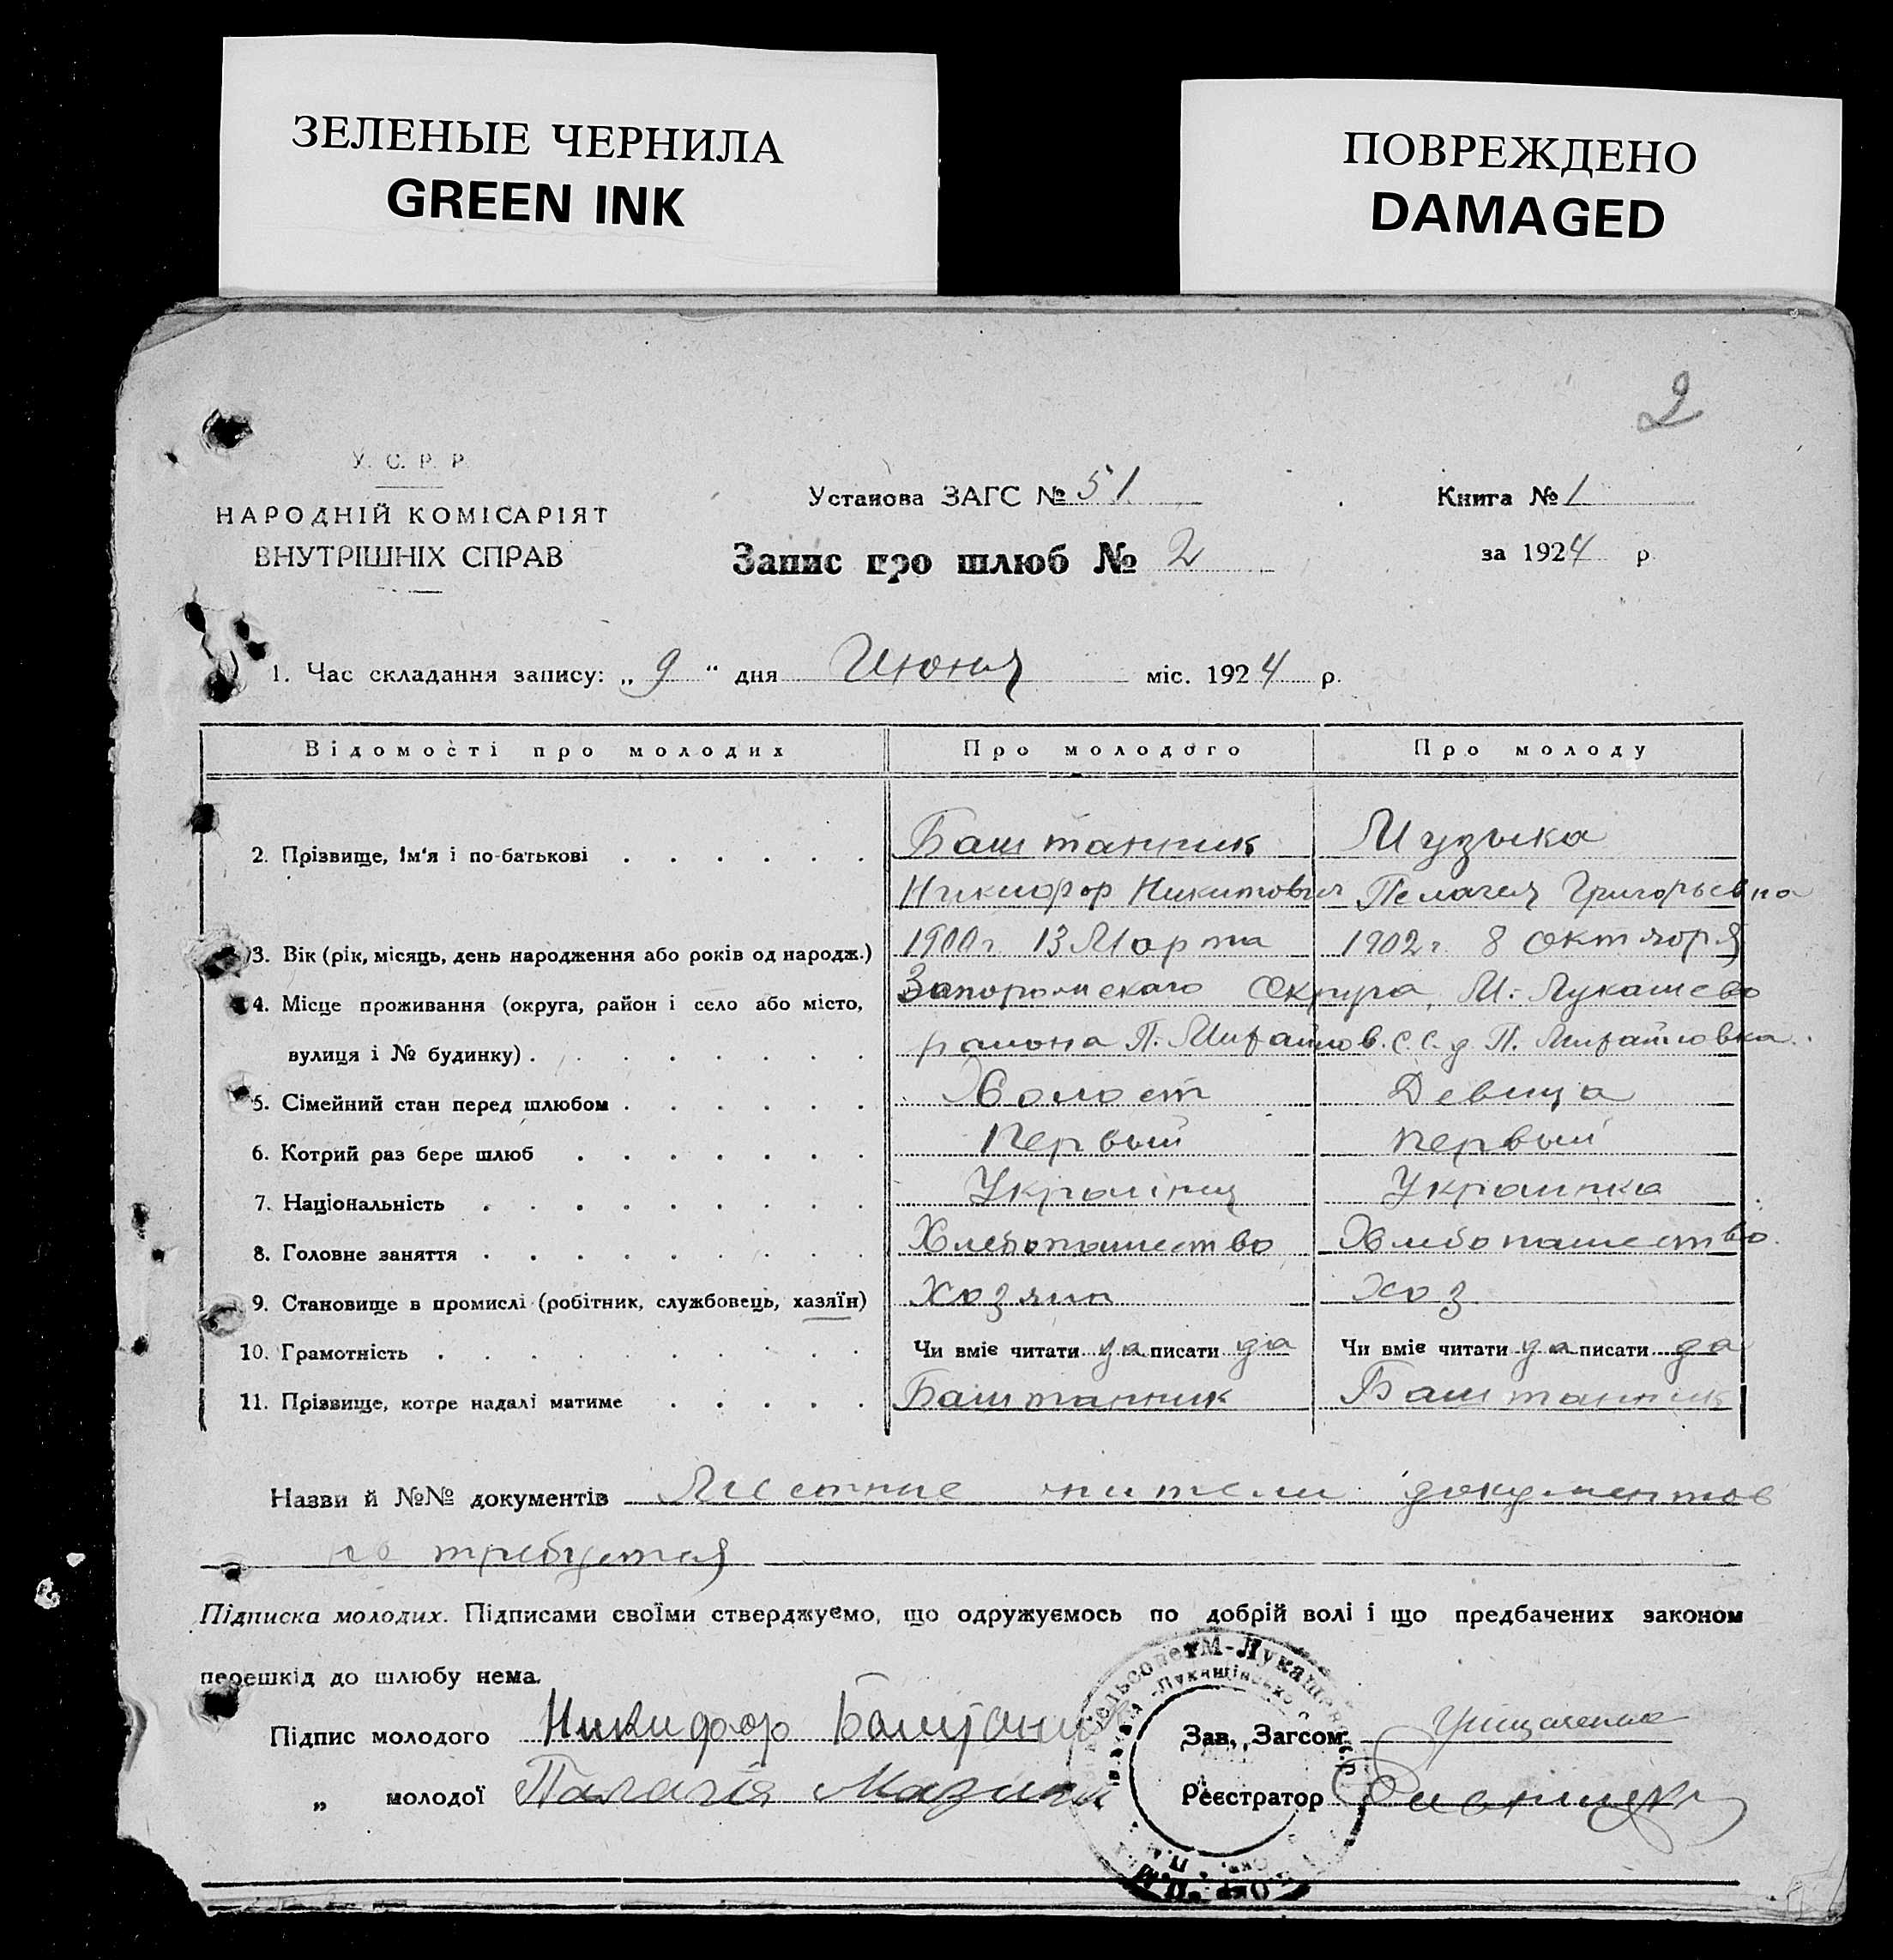 ЗЕЛЕНЫЕ ЧЕРНИЛА
GREEN INK
ПОВРЕЖДЕНО
DAMAGED
2
У. С. Р. Р.
НАРОДНІЙ КОМІСАРІЯТ
ВНУТРІШНІХ СПРАВ
Установа ЗАГС № 51
Книга № 1
Запис про шлюб № 2
за 1924 р
1. Час складання запису: „ 9 “ дня Июня міс. 1924 р.
Відомості про молодих Про молодого Про молоду
2. Прізвище, ім'я і по-батькові Баштанник Музыка
Никифор Никитович Пелагея Григорьевна
3. Вік (рік, місяць, день народження або років од народж.) 1900 г. 13 Марта 1902 г. 8 Октября
4. Місце проживання (округа, район і село або місто, Запорожскаго Округа, М.-Лукашево
вулиця і № будинку) района П. Михайлов. С. С. д. П. Михайловка.
5. Сімейний стан перед шлюбом Холост Девица
6. Котрий раз бере шлюб Первый первый
7. Національність Украінец Украинка
8. Головне заняття Хлебопашество Хлебопашество
9. Становище в промислі (робітник, службовець, хазяїн) Хозяин Хоз
10. Грамотність Чи вміє читати да писати да Чи вміє читати да писати да
11. Прізвище, котре надалі матиме Баштанник Баштанник
Назви й №№ документів Местные жители документов
не требуется
Підписка молодих. Підписами своїми стверджуємо, що одружуємось по добрій волі і що предбачених законом
перешкід до шлюбу нема.
Підпис молодого Никифор Баштаник
Зав. Загсом
„ молодої Палагія
Реєстратор